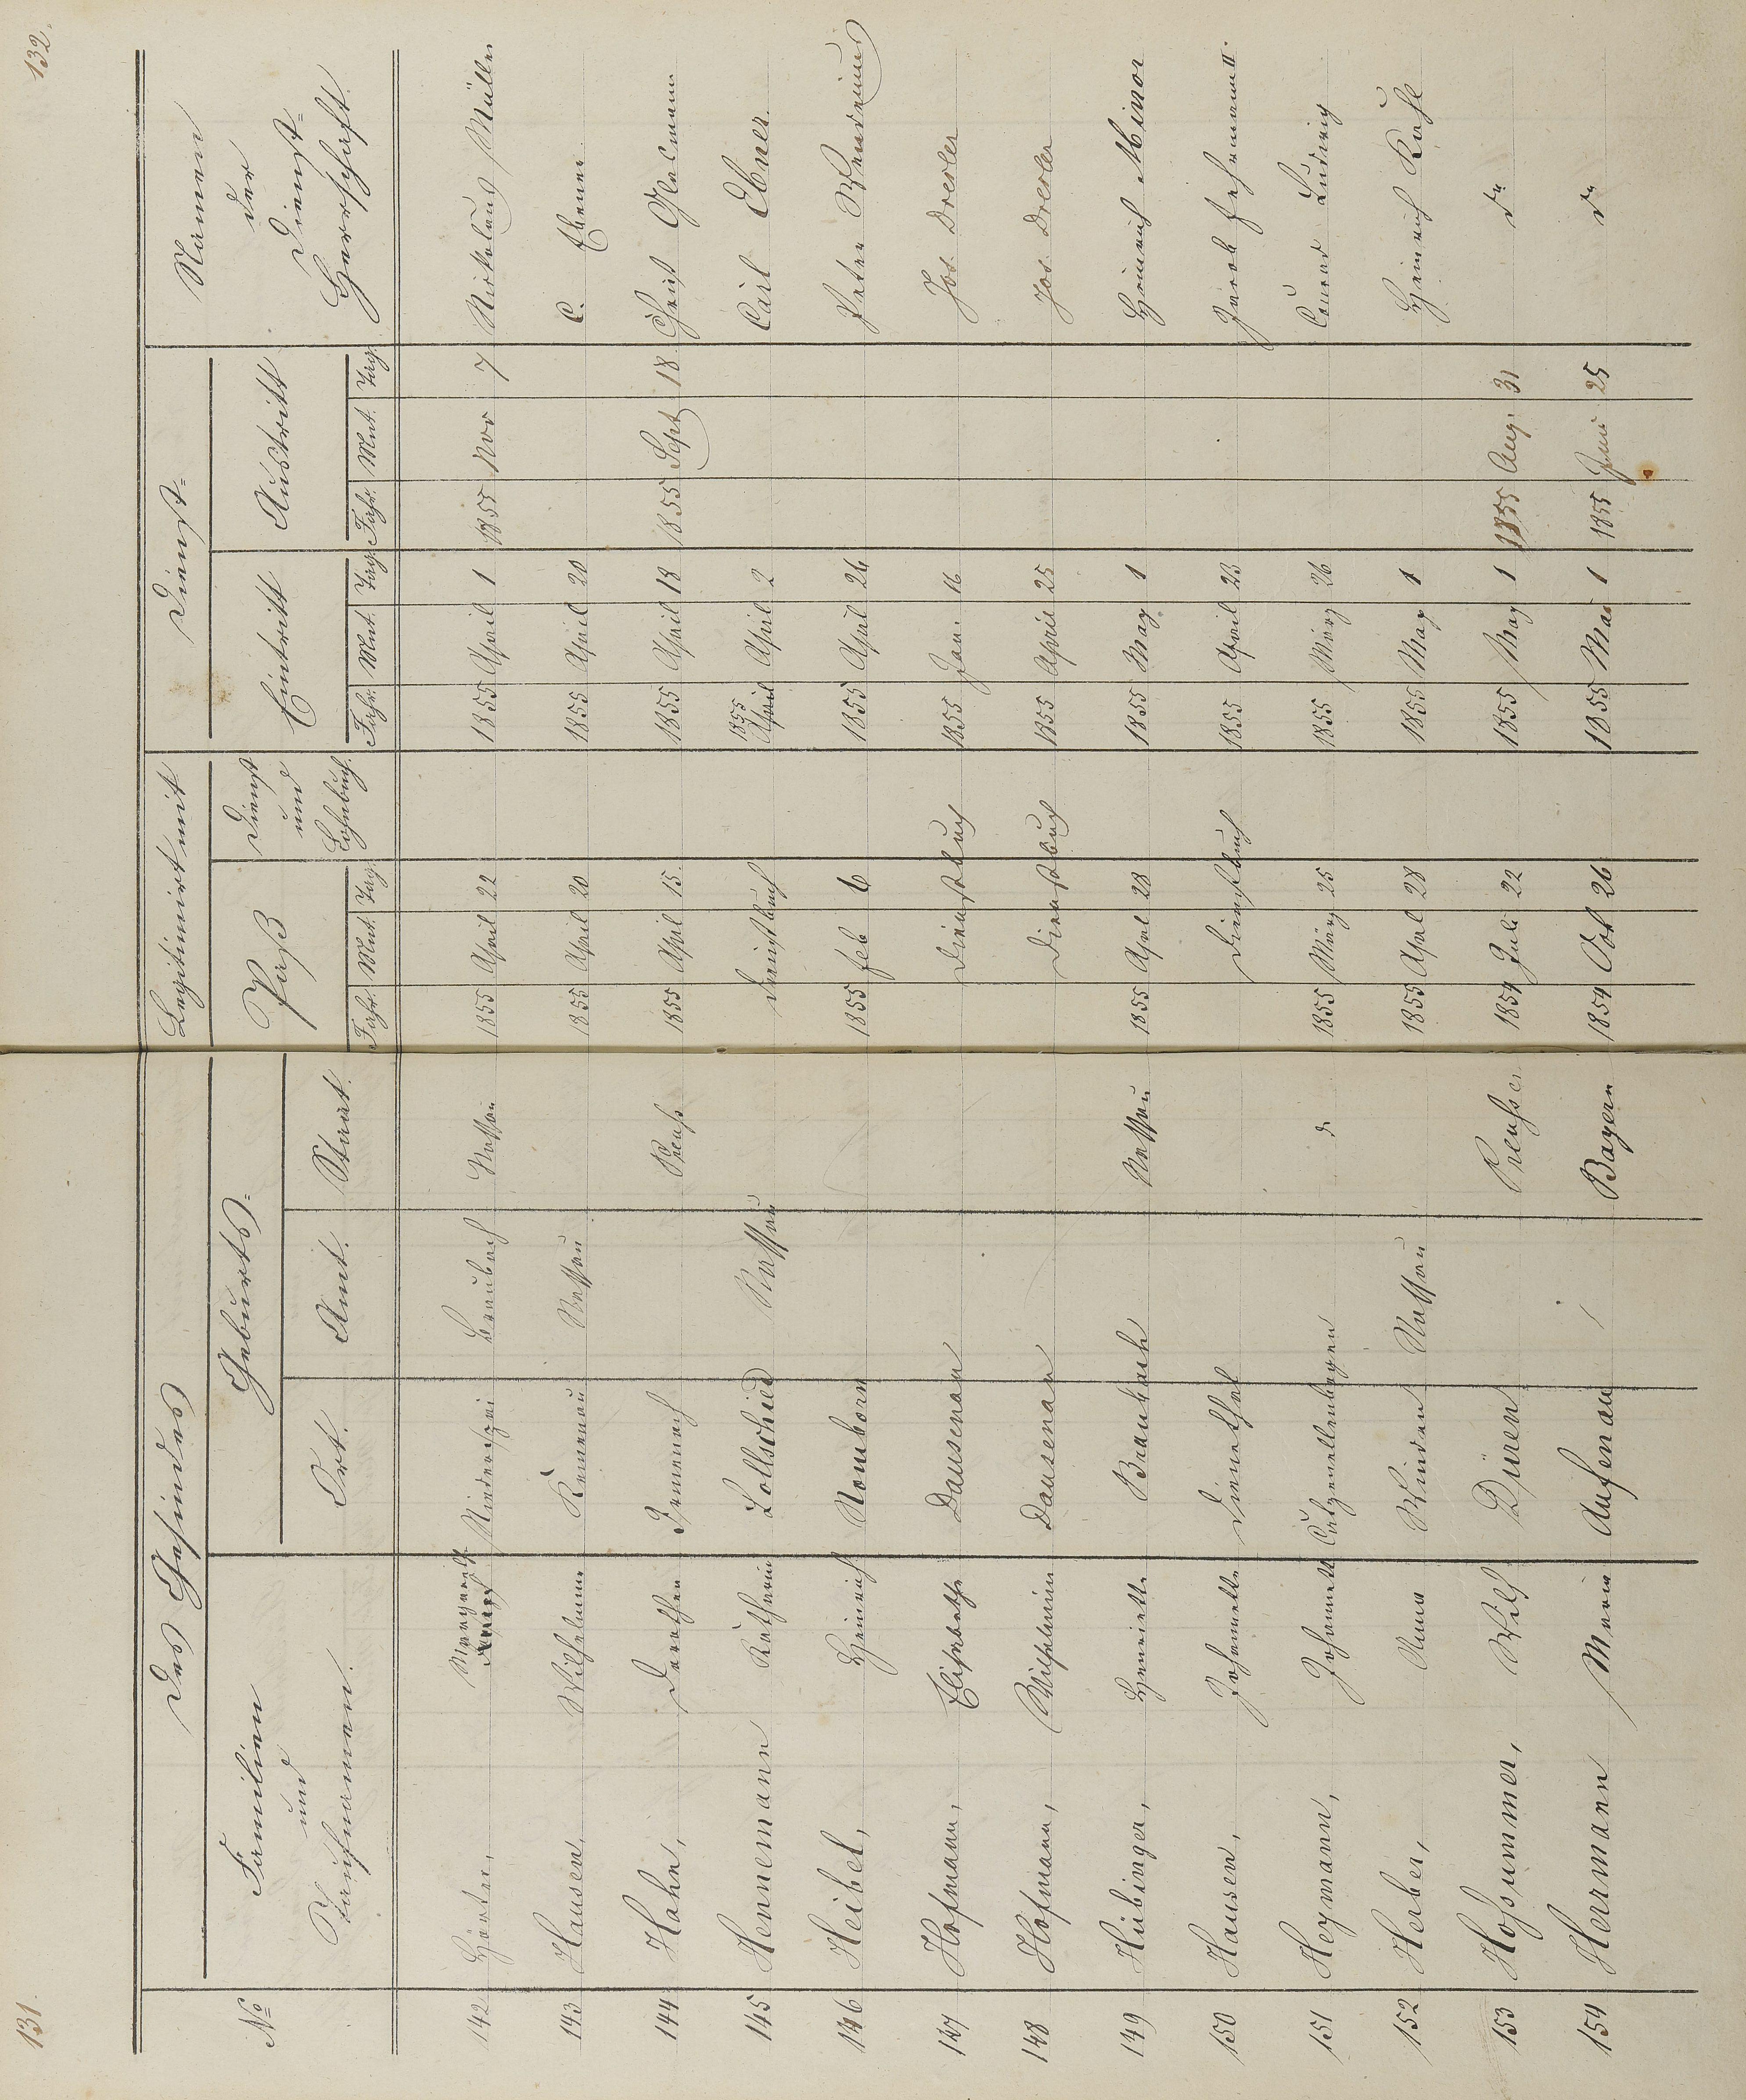 131.
132.
Des Gesindes
Legitimirt mit
Dienst-
Namen der Dienst-Herrschaft
No
Familien und Taufnamen.
Geburts-
Ort. Amt. Staat.
Paß
Jahr. Mnt. Tag.
Dienst und Lohnbuch.
Eintritt
Jahr. Mnt. Tag.
Austritt
Jahr. Mnt. Tag.
142 Braubach Nassau 1855 April 22 1855 April 1 1855 Nov 7 Nicolaus Müller
143 Hausen, Wilhelmine Kemenau Nassau 1855 April 20 1855 April 20 C.
144 Hahn, Dorothea Preuss 1855 April 15. 1855 April 18 1855 Sept 18
145 Hennemann Katharine Lollschied Nassau Dienstbuch 1855 April April 2 Carl Ebner.
146 Heibel, Heinrich Nomborn 1855 feb 6 1855 April 26 Peter
147 Hofmann, Elisabetha Dausenau Dienstbuch 1855 Jan. 16 Jos. Drexler
148 Hofmann, Wilhelmine Dausenau Dienstbuch 1855 April 25 Jos. Drexler
149 Hübinger, Henriette Braubach Nassau 1855 April 28 1855 May 1 Heinrich Minor
150 Hausen, Johannette Dienethal Dienstbuch 1855 April 23 Jacob Lehmann II.
151 Heymann, Johannette Catzenellenbogen d 1855 März 25 1855 März 26 Conrad Ludwig
152 Herber, Anna Winden Nassau 1855 April 28 1855 May 1 Heinrich
153 Hoßummer, Wilh Düren Preussen 1854 Juli 22 1855 May 1 1855 Aug. 31 do
154 Herrmann Maria Aufenau / Bayern 1854 Oct 26 1855 Mai 1 1855 Juni 25 do